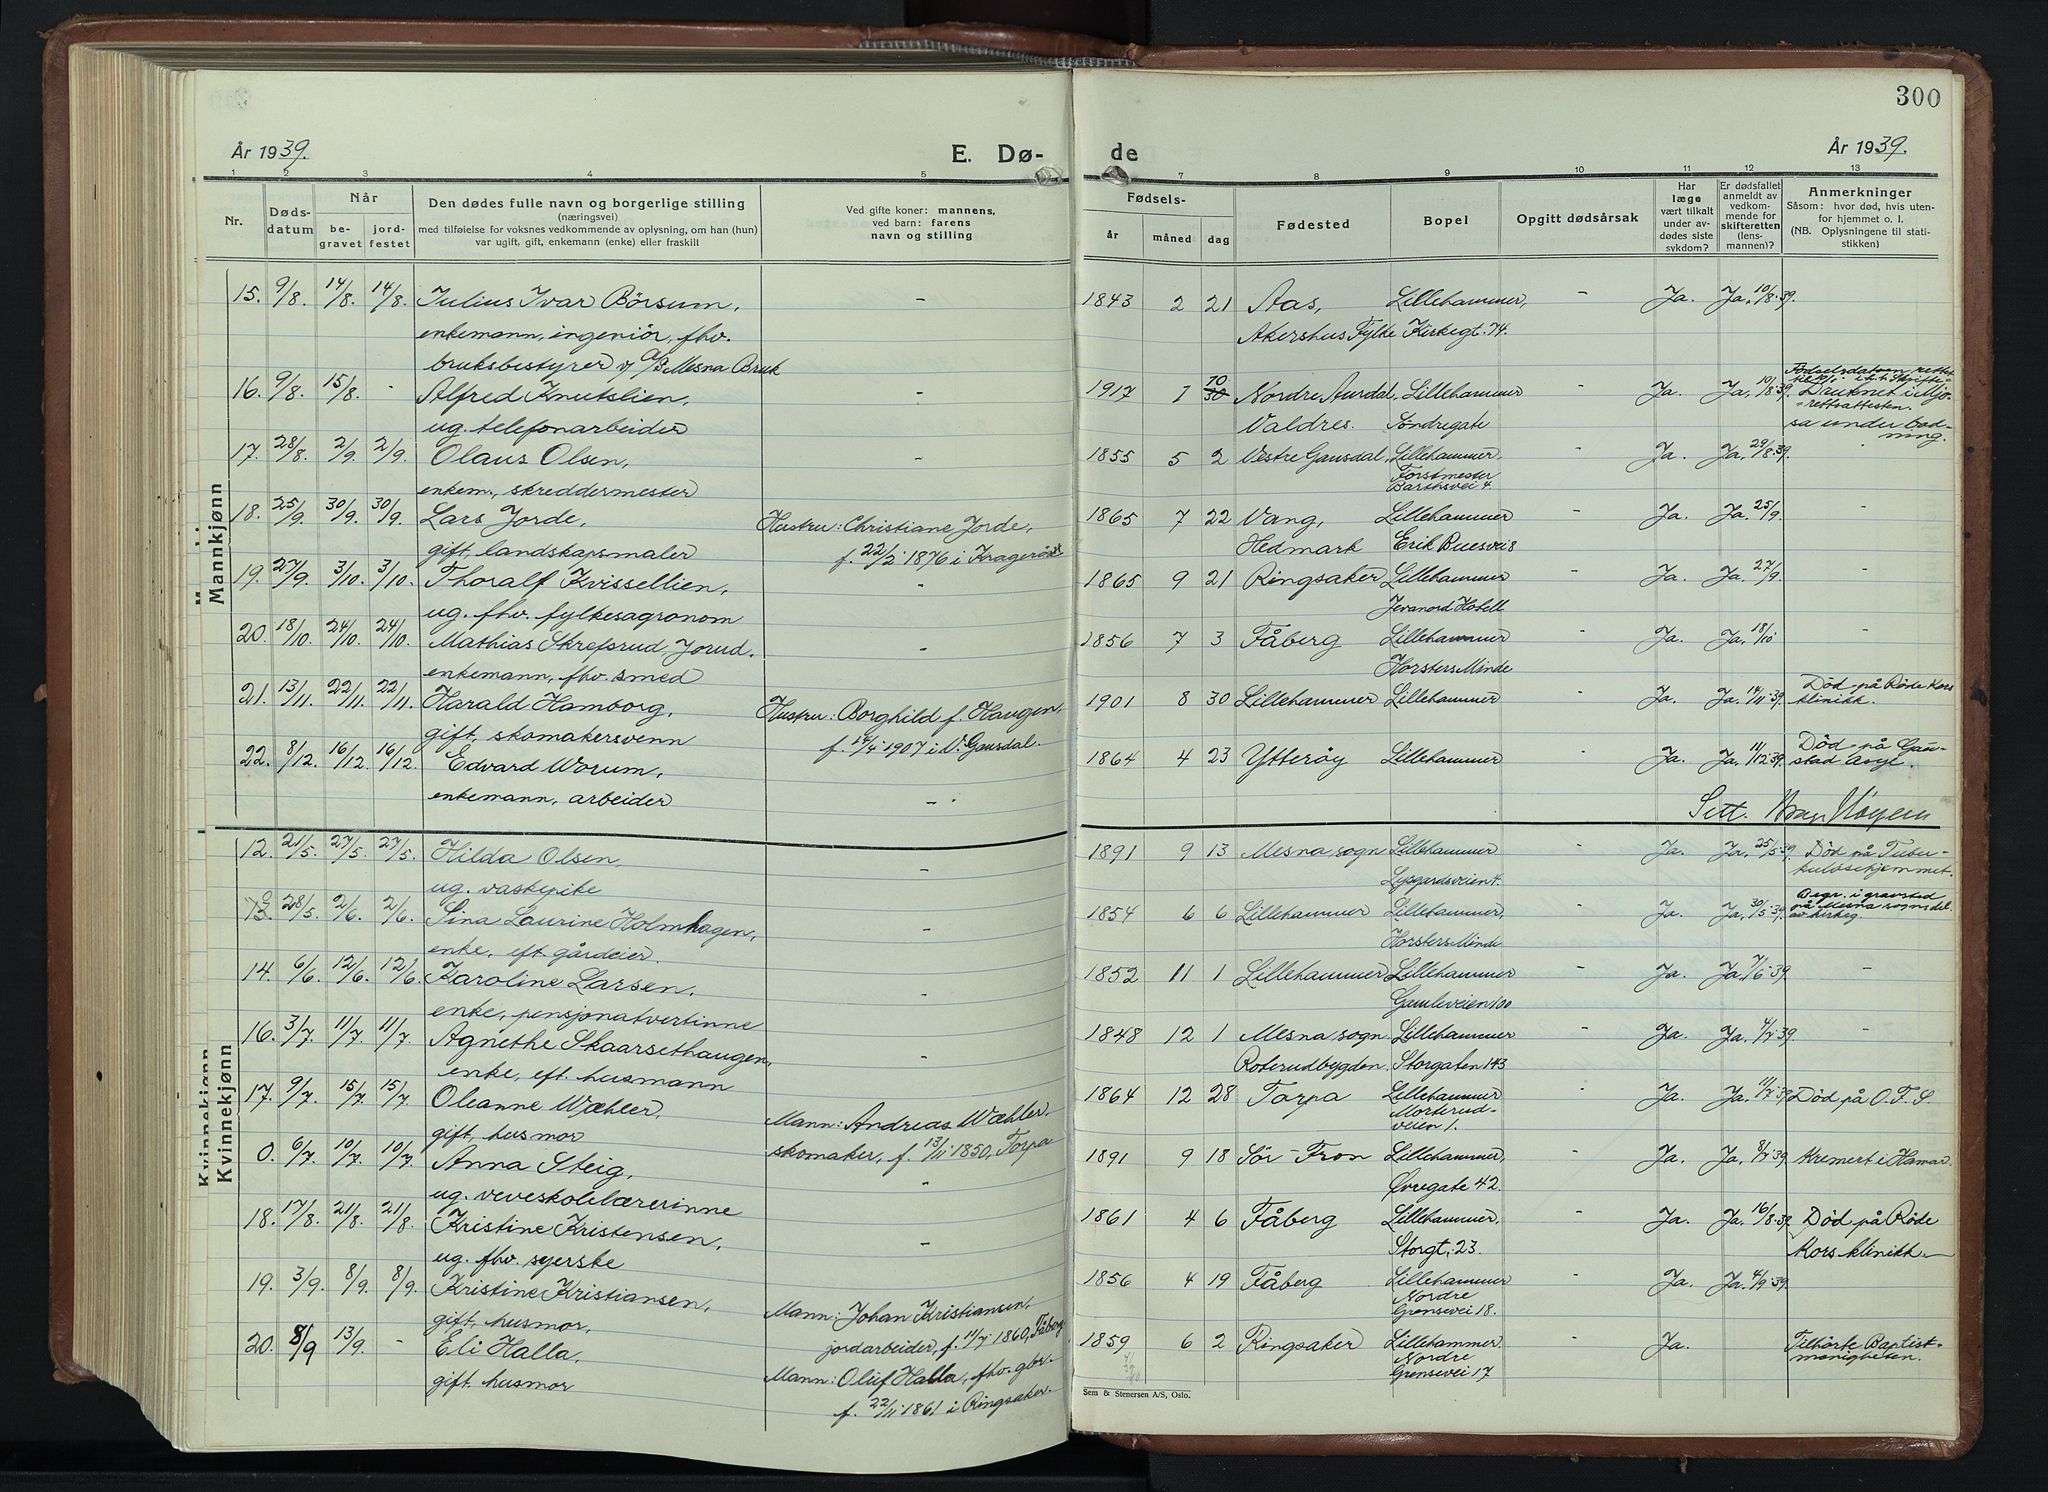 300
År 1939.
E. Dø-
de
År 1939.
1 2 3 4 5 7 8 9 10 11 12 13
Nr.
Døds-
datum
Når
be-
gravet
jord-
festet
Den dødes fulle navn og borgerlige stilling
(næringsvei)
med tilføielse for voksnes vedkommende av oplysning, om han (hun)
var ugift, gift, enkemann (enke) eller fraskilt
Ved gifte koner: mannens,
ved barn: farens
navn og stilling
Fødsels-
år måned dag
Fødested
Bopel
Opgitt dødsårsak
Har
læge
vært tilkalt
under av-
dødes siste
sykdom?
Er dødsfallet
anmeldt av
vedkom-
mende for
skifteretten
(lens-
mannen)?
Anmerkninger
Såsom: hvor død, hvis uten-
for hjemmet o. l.
(NB. Oplysningene til stati-
stikken)
Mannkjønn
15. 9/8. 14/8. 14/8. Julius Ivar Börsum, - 1843 2 21 Aas, Lillehammer, - Ja. Ja, 10/8-39.
enkemann, ingeniör, fhv. Akershus Fylke Kirkegt. 74.
bruksbestyrer v/ A/S Mesna Bruk
16. 9/8. 15/8. - Alfred Knutslien, - 1917 1 10 30 Nordre Aurdal, Lillehammer Ja. Ja, 10/8-39. Fødselsdatoen rettet
til 10/1 i h. t. Skifte-
Druknet i Mjø-
rettsattesten.
ug. telefonarbeider Valdres. Söndregate sa under bad-
ning.
17. 28/8. 2/9. 2/9. Olaus Olsen, - 1855 5 2 Vestre Gausdal, Lillehammer, - Ja. Ja, 29/8-39.
enkem., skreddermester Forstmester
Barthsvei 4.
18. 25/9. 30/9. 30/9. Lars Jorde, Hustru: Christiane Jorde, 1865 7 22 Vang, Lillehammer - Ja. Ja. 25/9. -
gift, landskapsmaler f. 22/2 1876 i Kragerö Hedmark Erik Buesvei 8
19. 27/9. 3/10. 3/10. Thoralf Kvissellien, - 1865 9 21 Ringsaker Lillehammer - Ja. Ja. 27/9. -
ug. fhv. fylkesagronom Jevanord Hotell
20. 18/10. 24/10. 24/10. Mathias Skrefsrud Jorud. - 1856 7 3 Fåberg Lillehammer - Ja. Ja, 18/10
enkemann, fhv. smed Horsters Minde
21. 13/11. 22/11. 22/11. Harald Hamborg, Hustru: Borghild f. Haugen, 1901 8 30 Lillehammer Lillehammer Ja. Ja, 14/11-39. Död på Röde Kors
klinikk.
gift, skomakersvenn f. 14/4-1907 i V. Gausdal.
22. 8/12. 16/12. 16/12. Edvard Worum, 1864 4 23 Ytteröy Lillehammer Ja. Ja, 11/12 39. Död på Gau-
stad Asyl.
enkemann, arbeider -
Sett.
Kvinnekjønn
12. 21/5. 27/5. 27/5. Hilda Olsen, - 1891 9 13 Mesna sogn Lillehammer - Ja. Ja. 25/5-39. Död på Tuber-
kulosehjemmet.
ug. vaskepike Lysgardsveien 4.
13 28/5. 2/6. 2/6. Sina Laurine Holmhagen, - 1854 6 6 Lillehammer Lillehammer, - Ja. Ja, 30/5-39. Begr. i gravsted
på Mesna sogns del
av kirkeg.
enke, eft. gårdeier. Horsters Minde
14. 6/6. 12/6. 12/6. Karoline Larsen, - 1852 11 1 Lillehammer Lillehammer - Ja. Ja, 7/6-39. -
enke, pensjonatvertinne Gamleveien 100
16. 3/7. 11/7. 11/7. Agnethe Skaarsethaugen, - 1848 12 1 Mesna sogn Lillehammer - Ja. Ja. 4/7-39. -
enke, eft. husmann Roterudbygden. Storgaten 143
17. 9/7. 15/7. 15/7. Oleanne Wæhler, Mann: Andreas Wæhler, 1864 12 28 Torpa Lillehammer - Ja. Ja. 11/7-39 Död på O.F.S
gift, husmor skomaker, f. 13/11-1850, Torpa Morterud-
veien 1.
0. 6/7. 10/7. 10/7. Anna Steig, - 1891 9 18 Sör-Fron Lillehammer, - Ja. Ja, 8/7-39. Kremert i Hamar.
ug. veveskolelærerinne Övregate 42.
18. 17/8. 21/8. 21/8. Kristine Kristensen, - 1861 4 6 Fåberg Lillehammer, - Ja. Ja. 16/8-39, Död på Röde
ug. fhv. syerske Storgt. 23. Kors klinikk.
19. 3/9. 8/9. 8/9. Kristine Kristiansen, Mann: Johan Kristiansen, 1856 4 19 Fåberg Lillehammer - Ja. Ja. 4/9-39.
gift, husmor, jordarbeider, f. 11/7-1860, Fåberg Nordre
Grensevei 18.
20. 8/9 13/9. - Eli Halla, Mann: Oluf Halla, fhv. gbr. 1859 6 2 Ringsaker Lillehammer. - Ja. Tilhörte Baptist-
menigheten.
gift, husmor f. 22/11-1861 i Ringsaker. Nordre
Grensevei 17
Sem & Stenersen A/S, Oslo.